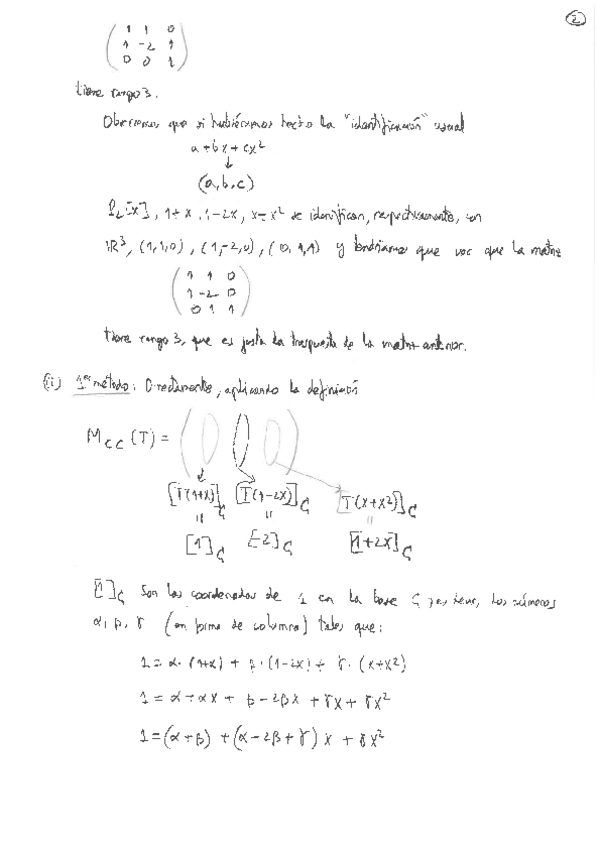 2
( 1 1 0
1 -2 1
0 0 1 )
tiene rango 3.
Observemos que si hubiéramos hecho la "identificación" usual
a + bx + cx²
↓
(a, b, c)
P₂[x], 1+x, 1-2x, x+x² se identifican, respectivamente, con
ℝ³, (1,1,0), (1,-2,0), (0,1,1) y tendríamos que ver que la matriz
( 1 1 0
1 -2 0
0 1 1 )
tiene rango 3, que es justo la traspuesta de la matriz anterior.
(i) 1er método: Directamente, aplicando la definición
M_CC (T) = ( )
[T(1+x)]_C [T(1-2x)]_C [T(x+x²)]_C
= = =
[1]_C [-2]_C [1+2x]_C
[1]_C son las coordenadas de 1 en la base C, es decir, los números
α, β, γ (en forma de columna) tales que:
1 = α·(1+x) + β·(1-2x) + γ·(x+x²)
1 = α + αx + β - 2βx + γx + γx²
1 = (α+β) + (α-2β+γ)x + γx²